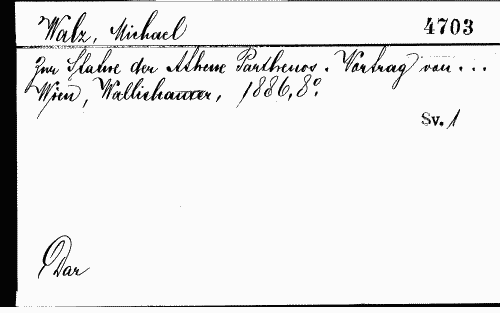 Walz, Michael 4703
Zur Statue der Athene Parthenos. Vortrag von...
Wien, Wallishausser, 1886, 8°.
Sv. 1
Dar